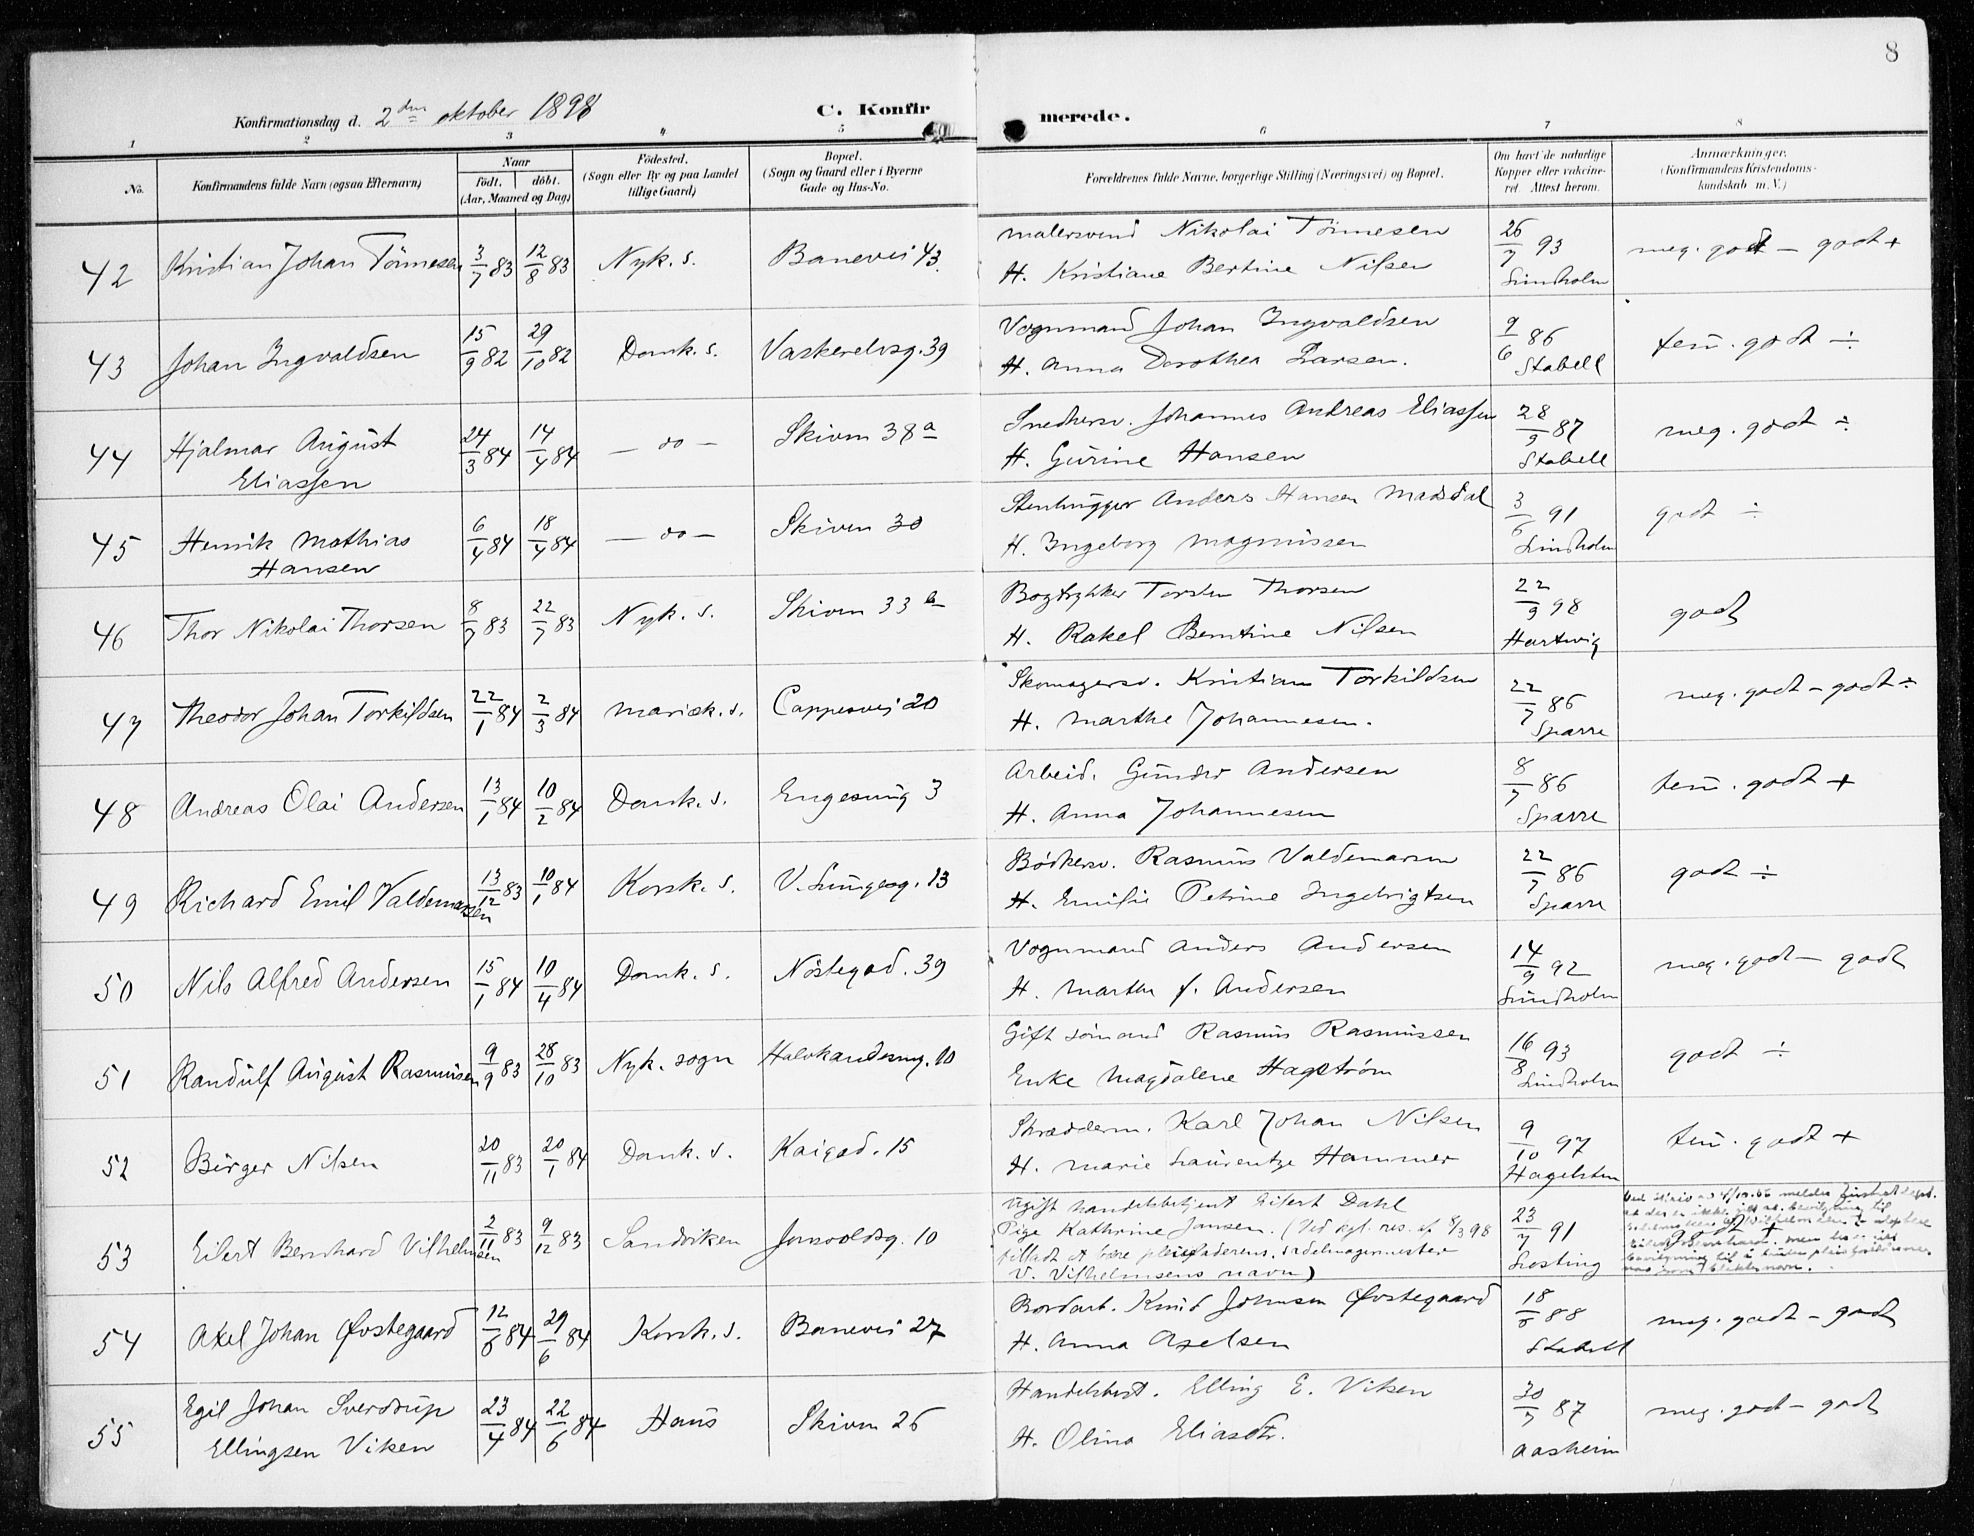 8
Konfirmationsdag d. 2den oktober 1898
C. Konfirmerede.
1 2 3 4 5 6 7 8
No.
Konfirmandens fulde Navn (ogsaa Efternavn)
Naar
født. døbt.
(Aar, Maaned og Dag)
Fødested.
(Sogn eller By og paa Landet
tillige Gaard)
Bopæl.
(Sogn og Gaard eller i Byerne
Gade og Hus-No.
Forældrenes fulde Navne, borgerlige Stilling (Næringsvei) og Bopæl.
Om havt de naturlige
Kopper eller vakcine-
ret. Attest herom.
Anmærkninger.
(Konfirmandens Kristendoms-
kundskab m. V.)
42 Kristian Johan Tönnesen 3/7 83 12/8 83 Nyk. s. Banevei 43.
malersvend Nikolai Tönnesen
H. Kristiane Bertine Nilsen
26/7 93 Lindholm
meg. godt – godt +
43 Johan Ingvaldsen 15/9 82 29/10 82 Domk. s. Vaskerelvsg. 39
Vognmand Johan Ingvaldsen
H. Anna Dorothea Larsen.
9/6 86 Stabell
tem. godt ÷
44 Hjalmar August
Eliassen 24/3 84 14/4 84 — do — Skiven 38 a
Snedkersv. Johannes Andreas Eliassen
H. Gurine Hansen
28/9 87 Stabell
meg. godt ÷
45 Henrik Mathias
Hansen 6/4 84 18/4 84 — do — Skiven 30
Stenhugger Anders Hansen Madsdal
H. Ingeborg Magnussen
3/6 91 Lindholm
godt ÷
46 Thor Nikolai Thorsen 8/7 83 22/7 83 Nyk. s. Skiven 33
Bogtrykker Torsten Thorsen
H. Rakel Berntine Nilsen
22/9 98 Hartwig
godt
47 Theodor Johan Torkildsen 22/1 84 2/3 84 Mariæk. s. Cappesvei 20
Skomagersv. Kristian Torkildsen
H. Marthe Johannesen.
22/7 86 Sparre
meg. godt – godt ÷
48 Andreas Olai Andersen 13/1 84 10/2 84 Domk. s. Engesmug 3
Arbeid. Gunder Andersen
H. Anna Johannesen
8/7 86 Sparre
tem. godt +
49 Richard Emil Valdemarsen 13/12 83 10/1 84 Korsk. s. V. Lungesg. 13
Bödkersv. Rasmus Valdemarsen
H. Emilie Petrine Ingebrigtsen
22/7 86 Sparre
godt ÷
50 Nils Alfred Andersen 15/1 84 10/4 84 Domk. s. Nöstegad. 39
Vognmand Anders Andersen
H. Marthe f. Andersen
14/9 92 Lindholm
meg. godt – godt
51 Randulf August Rasmussen 9/9 83 28/10 83 Nyk. sogn Halvkandesmg. 10
Gift sömand Rasmus Rasmussen
Enke Magdalene Hagström
16/8 93 Lindholm
godt ÷
52 Birger Nilsen 20/11 83 20/1 84 Domk. s. Kaigad. 15
Skrædderm. Karl Johan Nilsen
H. Marie Laurentze Hammer
9/10 97 Hagelsten
tem. godt +
53 Eilert Bernhard Vilhelmsen 2/11 83 9/12 83 Sandviken Jonsvoldsg. 10
Ugift handelsbetjent Eilert Dahl
Pige Kathrine Jansen. (Ved kgl. res. af 8/3 98
tilladt at bære pleiefaderens, sadelmagermester
V. Vilhelmsens navn)
23/7 91 Losting
godt +
54 Axel Johan Øvstegaard 12/6 84 29/6 84 Korsk. s. Banevei 27
Bordarb. Knud Johnsen Øvstegaard
H. Anna Axelsen
18/8 88 Stabell
meg. godt – godt
55 Egil Johan Sverdrup
Ellingsen Viken 23/4 84 22/6 84 Haus Skiven 26
Handelsbest. Elling E. Viken
H. Olina Eliasdtr.
30/7 87 Aasheim
meg. godt – godt